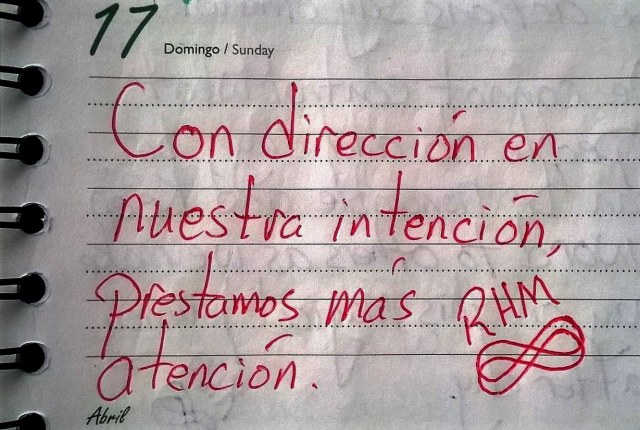 17 Domingo / Sunday
Con dirección en
nuestra intención,
prestamos más RHM
atención.
Abril